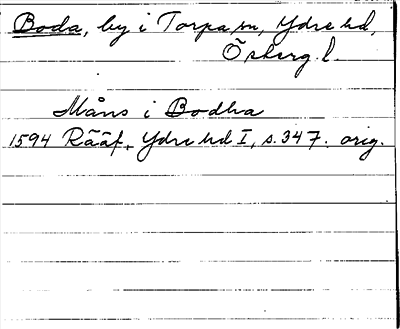 Boda, by i Torpa sn, Ydre hd,
Österg. l.
Måns i Bodha
1594 Rääf, Ydre hd I, s. 347. orig.